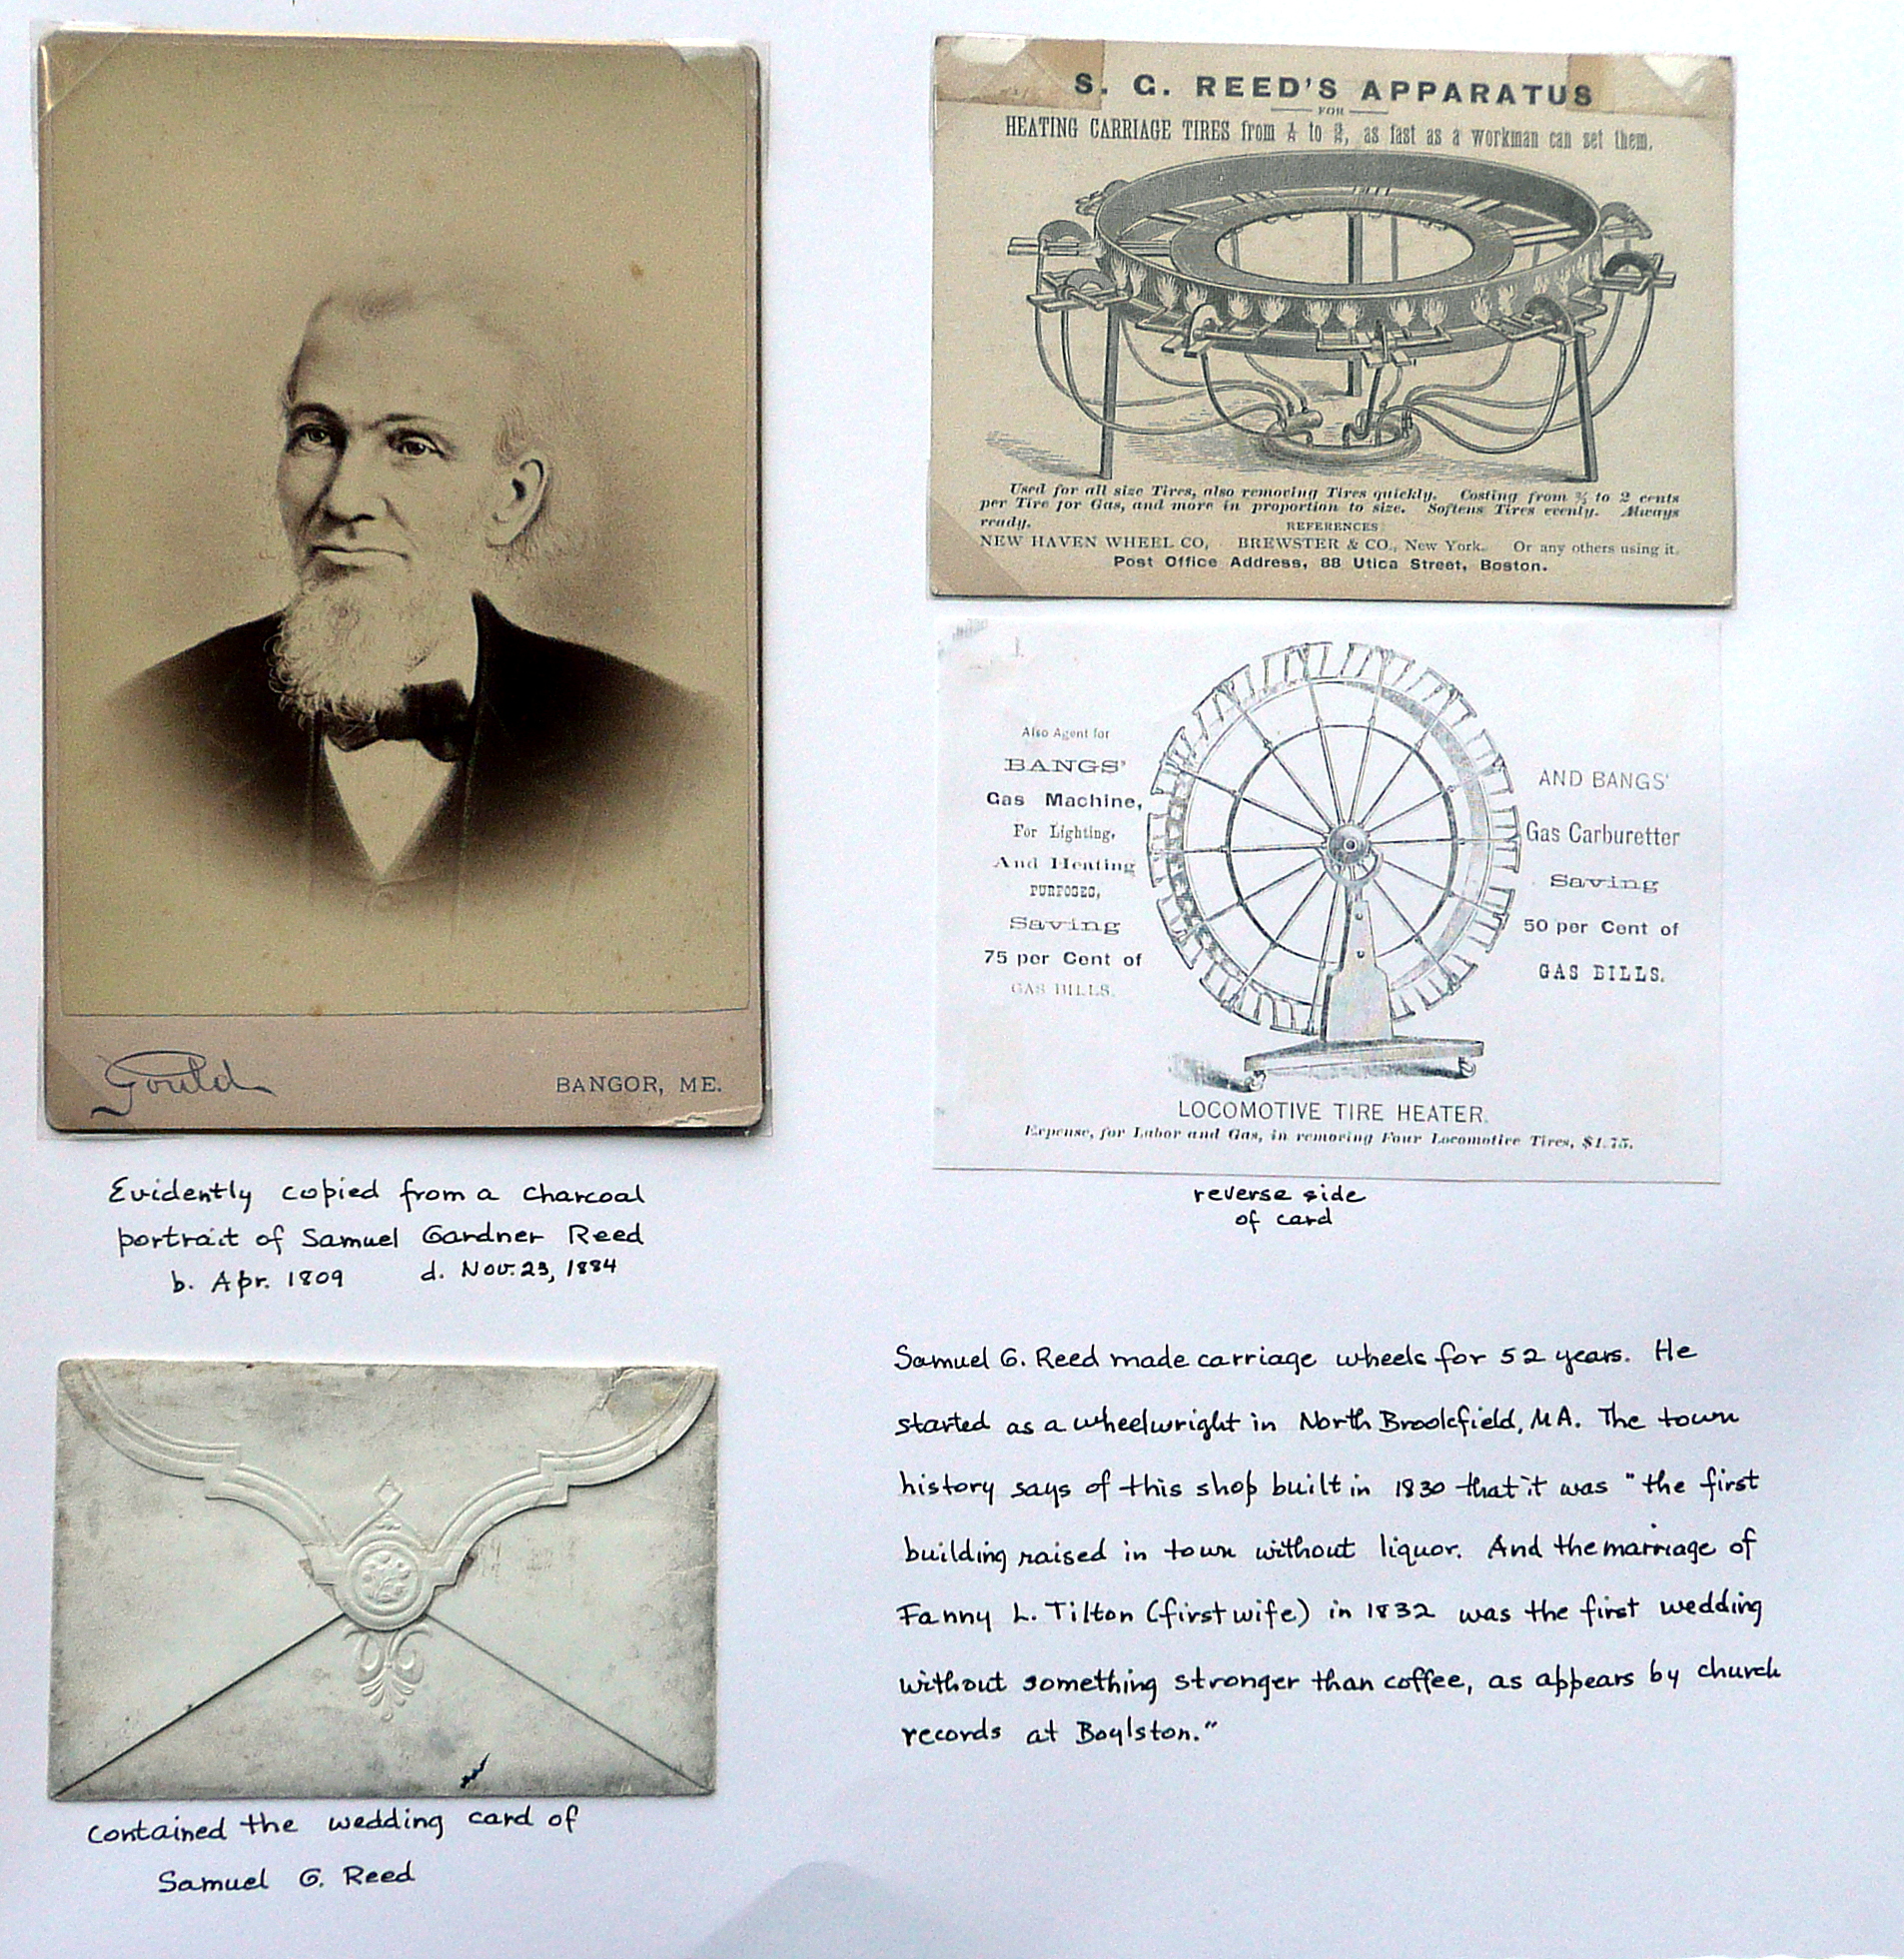 Gould
BANGOR, ME.
Evidently copied from a charcoal
portrait of Samuel Gardner Reed
b. Apr. 1809 d. Nov. 23, 1884
contained the wedding card of
Samuel G. Reed
S. G. REED'S APPARATUS
FOR
HEATING CARRIAGE TIRES from to as fast as a workman can set them.
Used for all size Tires, also removing Tires quickly. Costing from to 2 cents
per Tire for Gas, and more in proportion to size. Softens Tires evenly. Always
ready.
REFERENCES
NEW HAVEN WHEEL CO, BREWSTER & CO., New York. Or any others using it.
Post Office Address, 88 Utica Street, Boston.
Also Agent for
BANGS'
Gas Machine,
For Lighting,
And Heating
PURPOSES,
Saving
75 per Cent of
GAS BILLS.
AND BANGS'
Gas Carburetter
Saving
50 per Cent of
GAS BILLS.
LOCOMOTIVE TIRE HEATER.
Expense, for Labor and Gas, in removing Four Locomotive Tires, $1.75.
reverse side
of card
Samuel G. Reed made carriage wheels for 52 years. He
started as a wheelwright in North Brookfield, MA. The town
history says of this shop built in 1830 that it was "the first
building raised in town without liquor. And the marriage of
Fanny L. Tilton (first wife) in 1832 was the first wedding
without something stronger than coffee, as appears by church
records at Boylston."